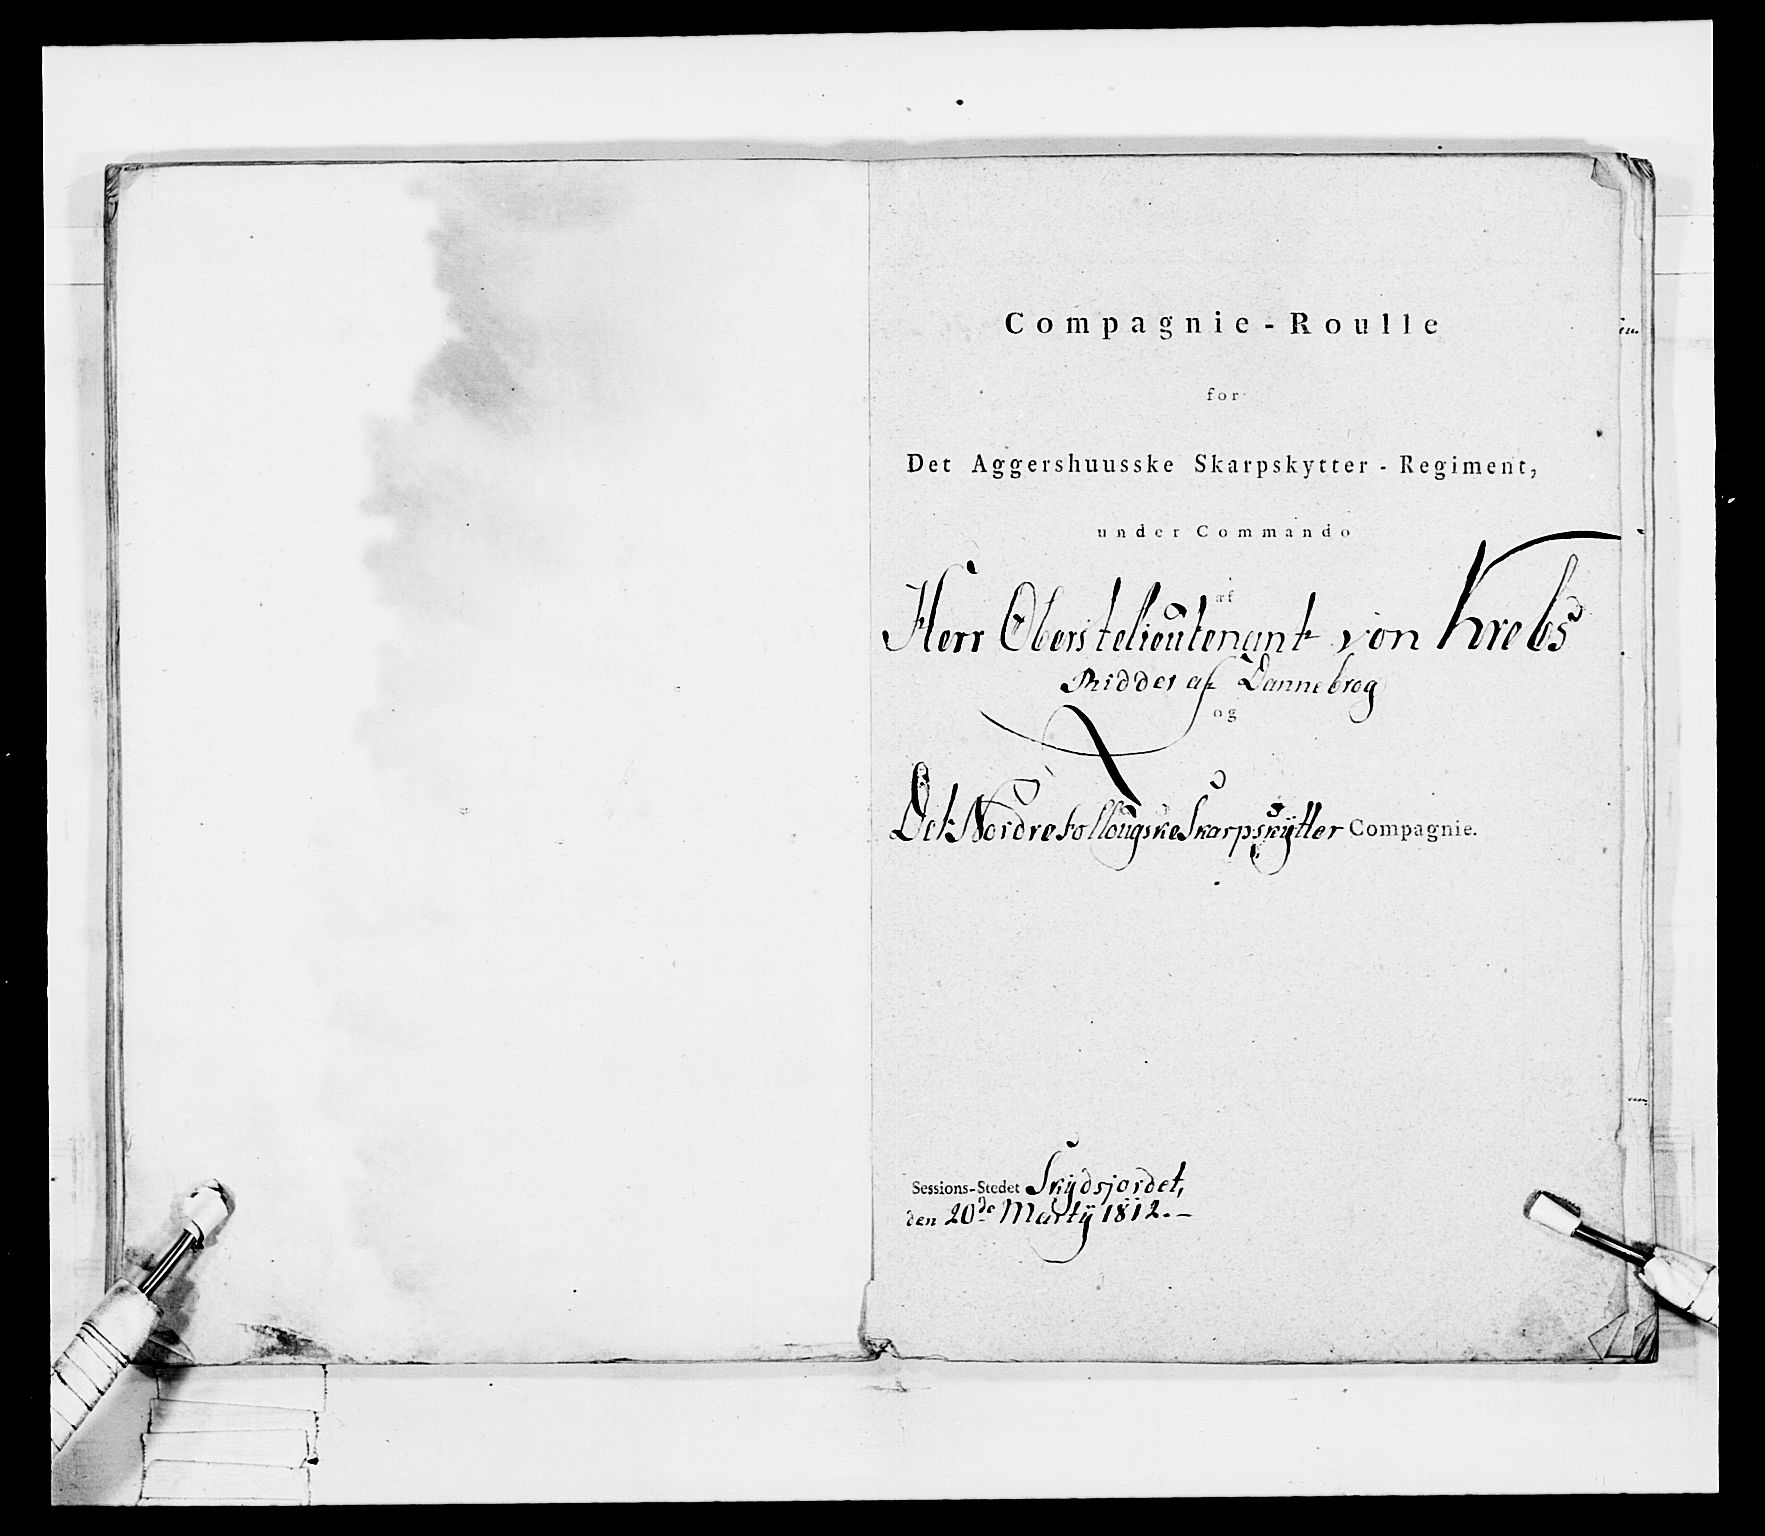 Compagnie-Roulle
for
Det Aggershuusske Skarpskytter-Regiment,
under Commando
af
Herr Oberstelieutenant von Krebs
Ridder af Dannebrog
og
Det Nordre follougske Skarpskÿtter Compagnie.
Sessions-Stedet Skÿdsjordet,
den 20de Martÿ 1812.-